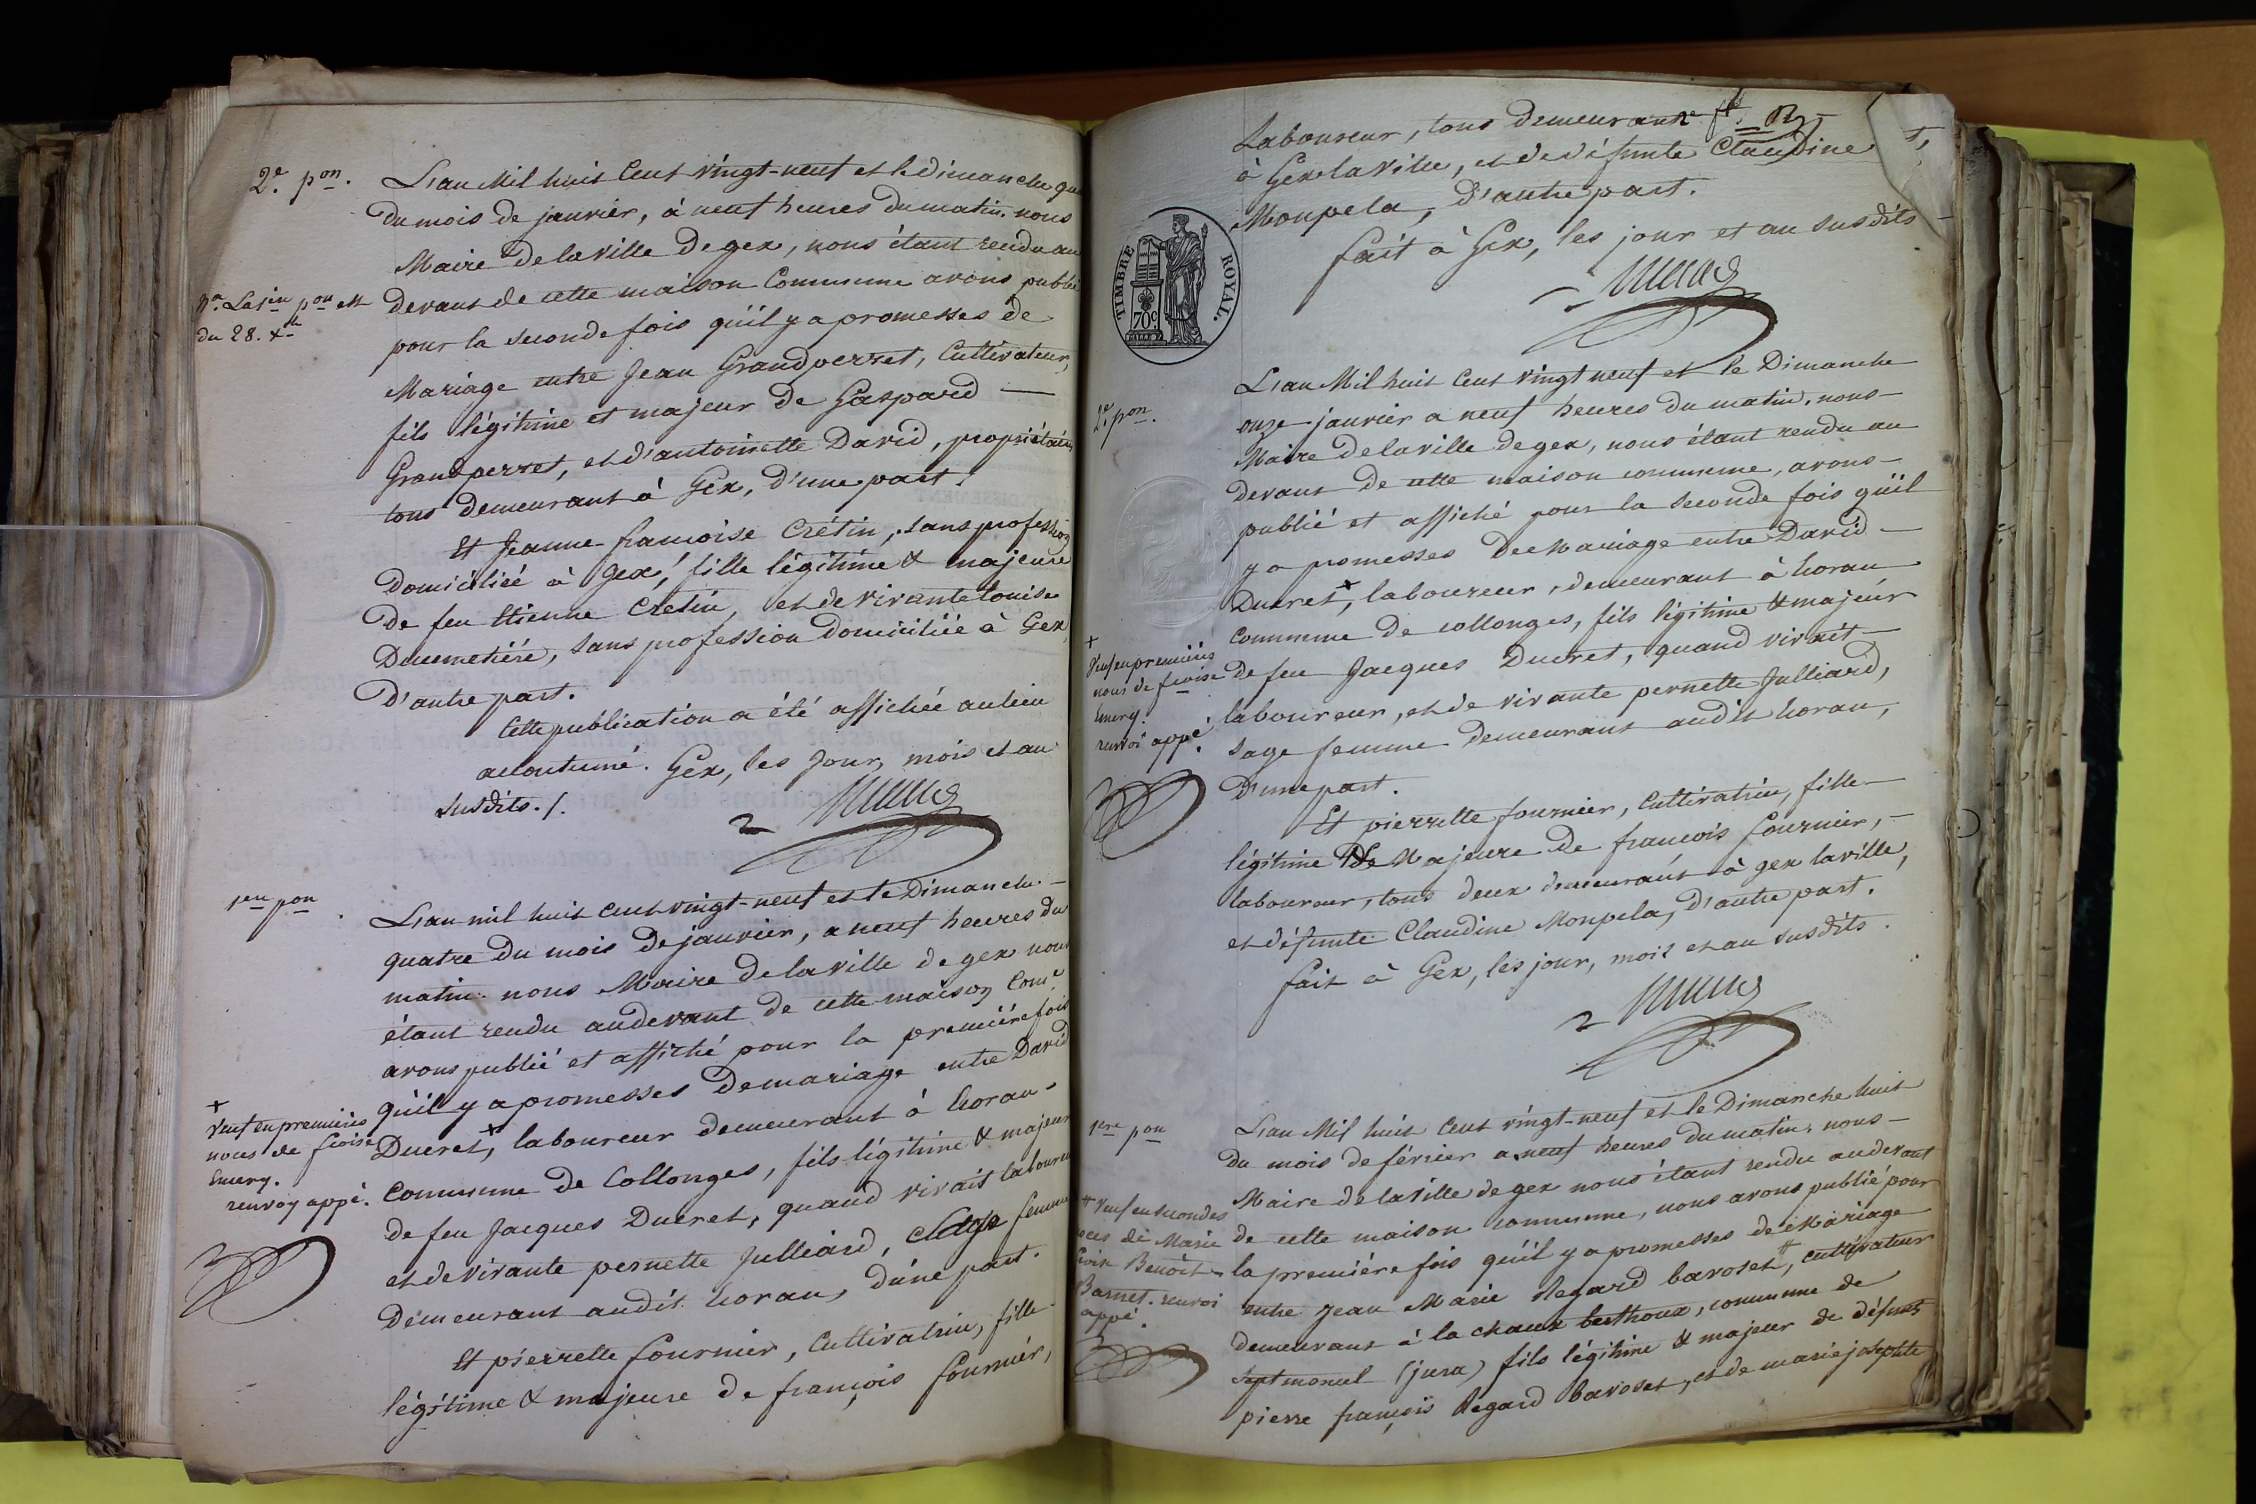 2e. pon.
L'an Mil huit Cent vingt-neuf et le dimanche
du mois de janvier, à neuf heures du matin. nous
Maire de la ville de gex, nous étant rendu au
Na. La 1ere pon est
du 28. xbre
devant de cette maison Commune avons publié
pour la seconde fois qu'il y a promesses de
Mariage entre Jean Grandperret, Cultivateur,
fils légitime et majeur de Gaspard
Grandperret, et d'antoinette David, propriétaires
tous demeurant à Gex, d'une part.
Et Jeanne francoise Crétin, sans profession
domiciliée à Gex, fille légitime & majeure
de feu Etienne Cretin, et de vivante Louise
Ducimetière, sans profession domiciliée à Gex
d'autre part.
Cette publication a été affichée au lieu
accoutumé. Gex, les jour, mois et an
susdits./.
1ere pon.
L'an mil huit cent vingt-neuf et le Dimanche
quatre du mois de janvier, a neuf heures du
matin. nous Maire de la ville de gex nous
étant rendu audevant de cette maison Come.
avons publié et affiché pour la première fois
qu'il y a promesses de mariage entre David
+
Veuf en premières
noces de fcoise
Emery.
renvoy appé.
Ducret+, laboureur demeurant à Ecoran
Commune de Collonges, fils légitime & majeur
de feu Jacques Ducret, quand vivait laboureur
et de vivante pernette Julliard, Sage femme
demeurant audit Ecoran, d'une part.
Et pierrette fournier, Cultivatrice, fille
légitime & majeure de françois fournier,
Laboureur, tous demeurant
à Gex la Ville, et de défunte Claudine
Monpela, d'autre part.
fait à Gex, les jour et an susdits
TIMBRE ROYAL.
70c
2e. pon.
L'an Mil huit Cent vingt neuf et le Dimanche
onze janvier a neuf heures du matin. nous
Maire de la ville de gex, nous étant rendu au
devant de cette maison commune, avons
publié et affiché pour la seconde fois qu'il
y a promesses de Mariage entre David
Ducret+, laboureur, demeurant à Ecoran
commune de collonges, fils légitime & majeur
+
Veuf en premières
noces de fcoise
Emery.
renvoi appé.
de feu Jacques Ducret, quand vivait
laboureur, et de vivante pernette Julliard,
sage femme demeurant audit Ecoran,
d'une part.
Et pierrette fournier, Cultivatrice, fille
légitime & Majeure de francois fournier,
laboureur, tous deux demeurant à gex la ville,
et défunte Claudine Monpela, d'autre part.
fait à Gex, les jour, mois et an susdits.
1ere pon
L'an Mil huit Cent vingt-neuf et le Dimanche huit
du mois de février a neuf heures du matin, nous
Maire de la Ville de gex nous étant rendu audevant
de cette maison commune, nous avons publié pour
la première fois qu'il y a promesses de Mariage
# Veuf en secondes
noces de Marie
Benoit
Barnet. renvoi
appé.
entre Jean Marie Regard baroset#, cultivateur
demeurant à la chaux berthoux, commune de
Septmoncel (jura) fils légitime & majeur de défunts
pierre françois Regard baroset, et de marie josephte